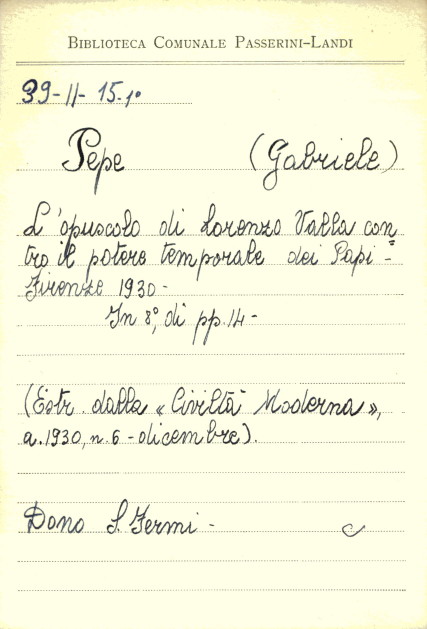 BIBLIOTECA COMUNALE PASSERINI-LANDI
39-II-15.1°
Pepe (Gabriele)
L'opuscolo di Lorenzo Valla con=
tro il potere temporale dei Papi -
Firenze 1930 -
In 8°, di pp. 14 -
(Estr. dalla « Civiltà Moderna »,
a. 1930, n. 6 - dicembre).
Dono S. Fermi -